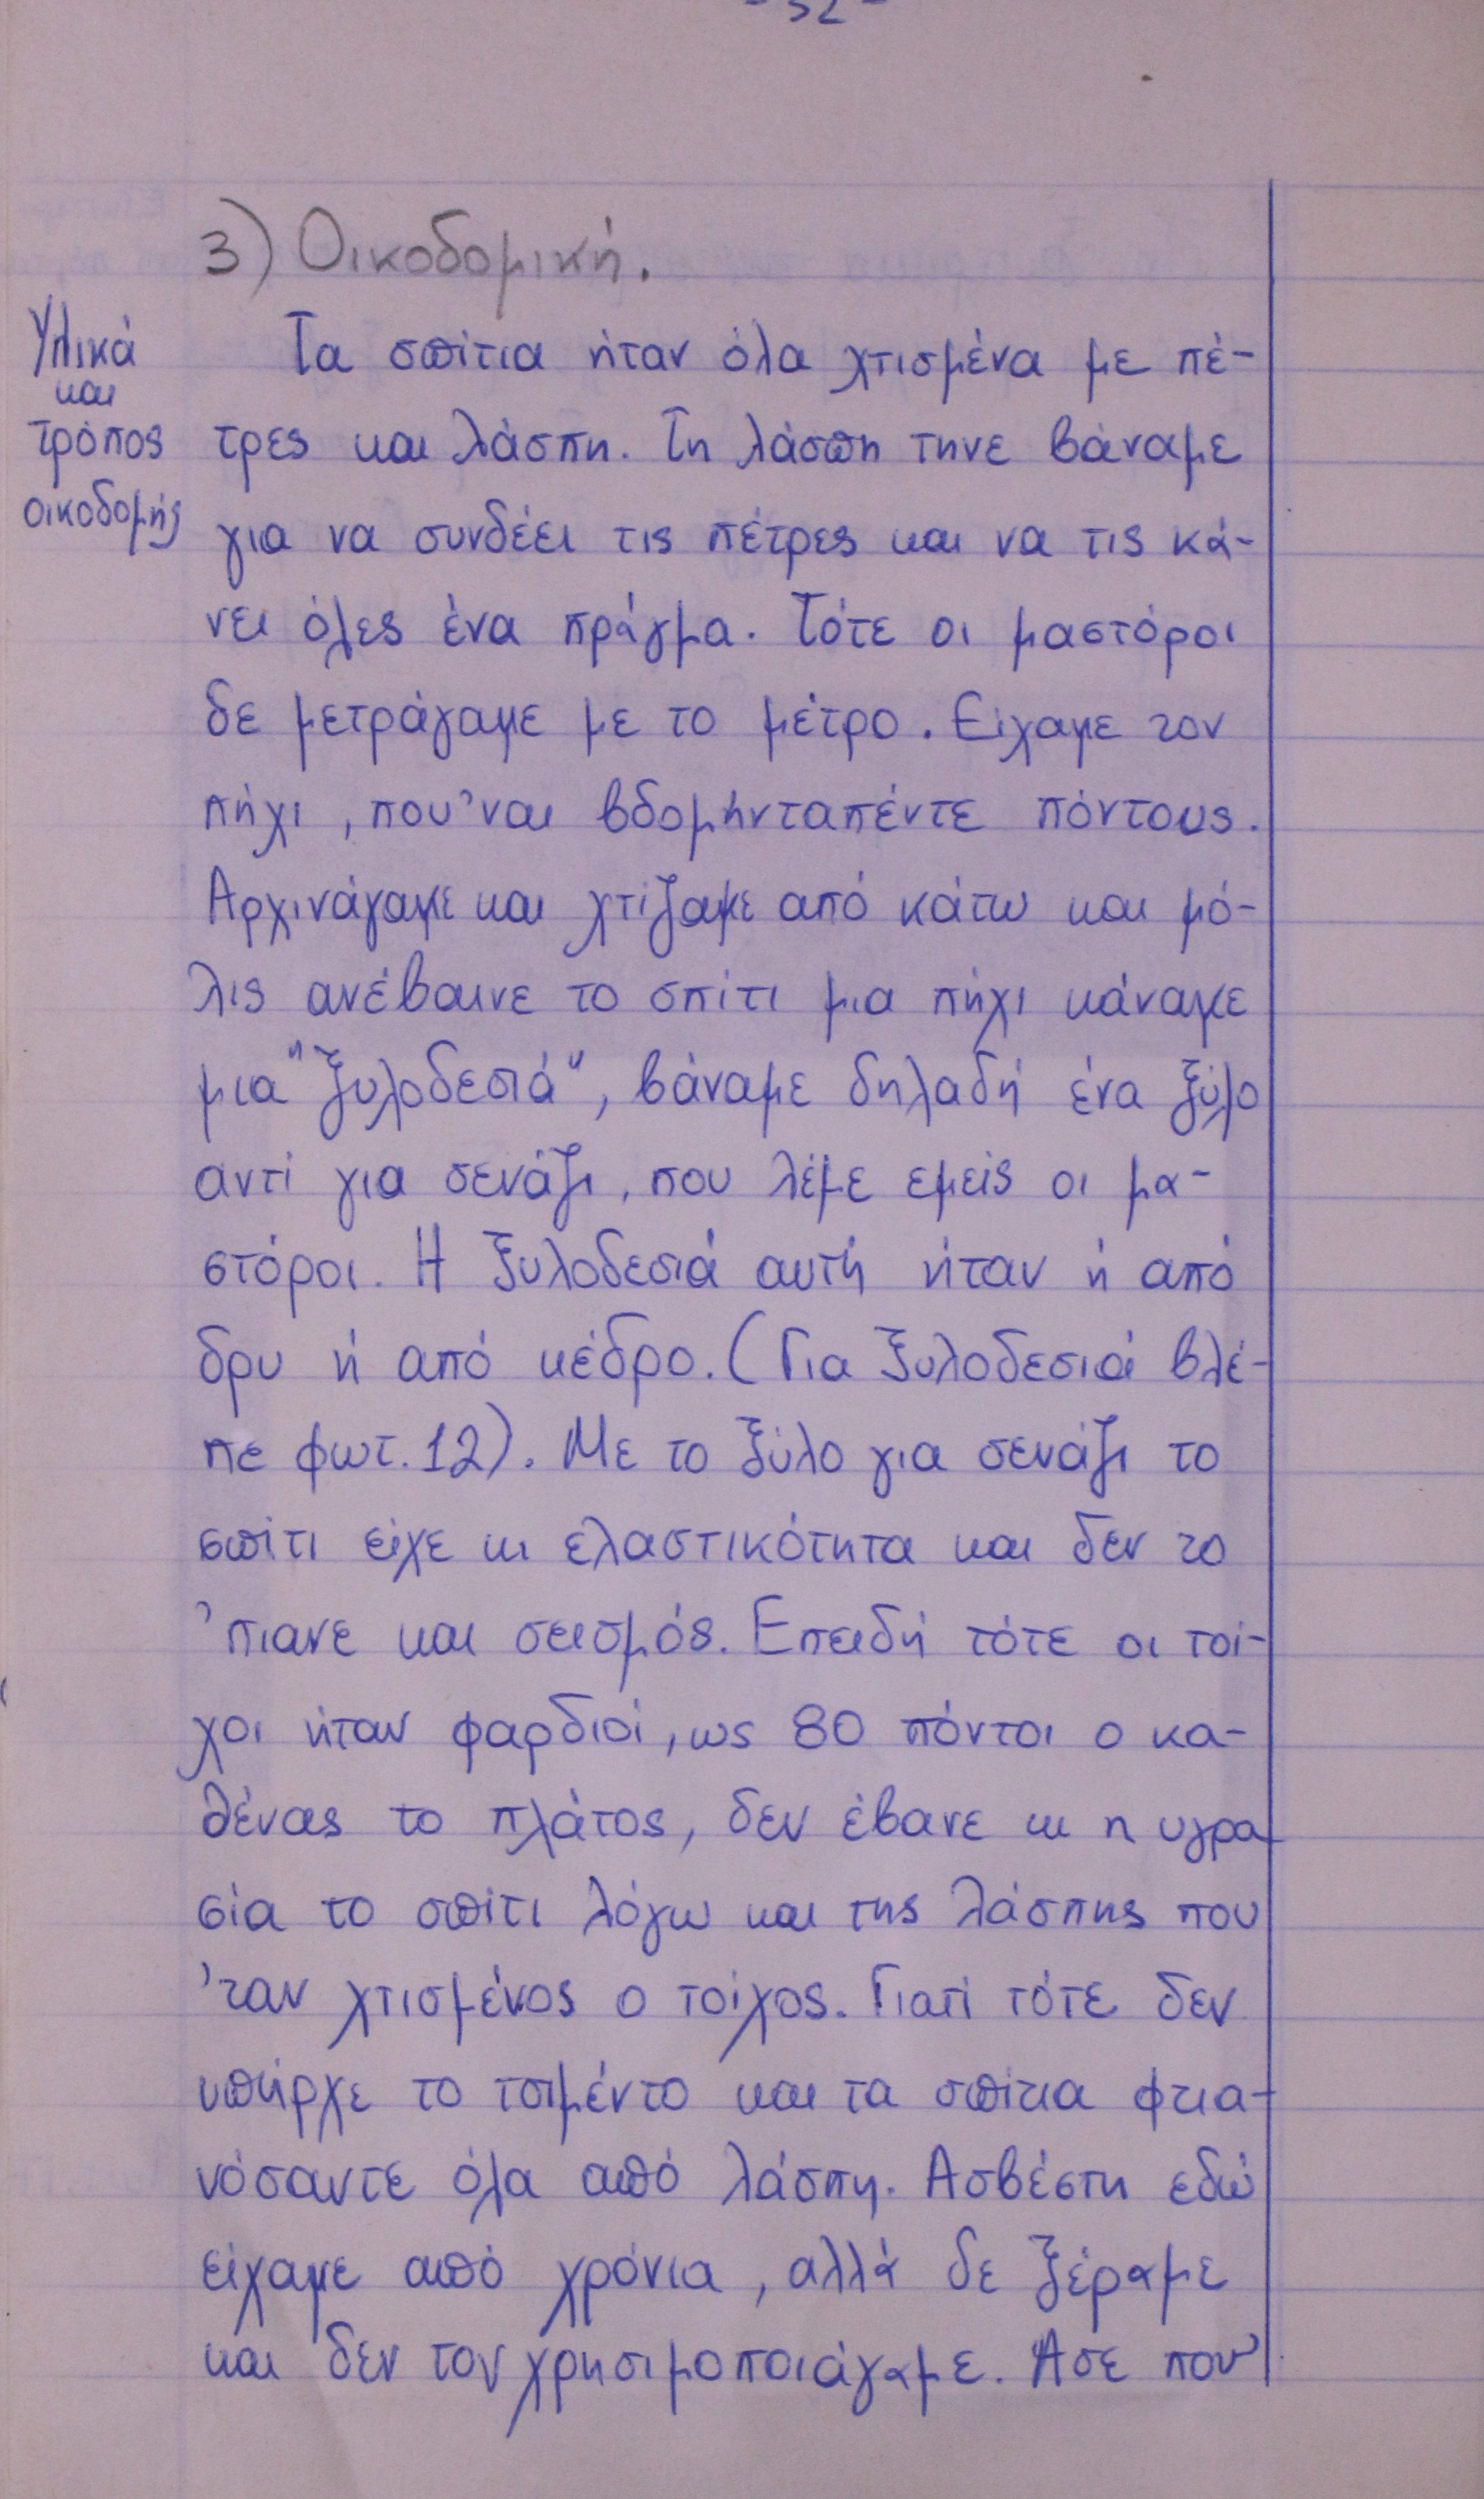 - 52 -
3) Οικοδομική.
Υλικά
και
τρόπος
οικοδομής
Τα σπίτια ήταν όλα χτισμένα με πέ-
τρες και λάσπη. Τη λάσπη τηνε βάναμε
για να συνδέει τις πέτρες και να τις κά-
νει όλες ένα πράγμα. Τότε οι μαστόροι
δε μετράγαμε με το μέτρο. Είχαμε τον
πήχι, που 'ναι βδομήνταπέντε πόντους.
Αρχινάγαμε και χτίζαμε από κάτω και μό-
λις ανέβαινε το σπίτι μια πήχι κάναμε
μια "ξυλοδεσιά", βάναμε δηλαδή ένα ξύλο
αντί για σενάζι, που λέμε εμείς οι μα-
στόροι. Η ξυλοδεσιά αυτή ήταν ή από
δρυ ή από κέδρο. (Για ξυλοδεσιά βλέ-
πε φωτ. 12). Με το ξύλο για σενάζι το
σπίτι είχε κι ελαστικότητα και δεν το
'πιανε και σεισμός. Επειδή τότε οι τοί-
χοι ήταν φαρδιοί, ως 80 πόντοι ο κα-
θένας το πλάτος, δεν έβανε κι η υγρα-
σία το σπίτι λόγω και της λάσπης που
'ταν χτισμένος ο τοίχος. Γιατί τότε δεν
υπήρχε το τσιμέντο και τα σπίτια φτια-
νόσαντε όλα από λάσπη. Ασβέστη εδώ
είχαμε από χρόνια, αλλά δε ξέραμε
και δεν τον χρησιμοποιάγαμε. Άσε που